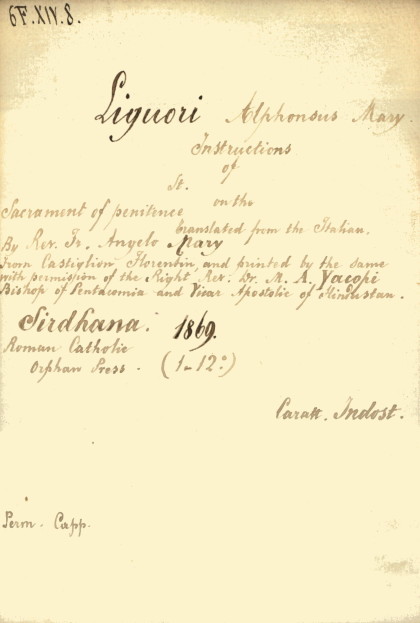 6F.XIV.8.
Liguori Alphonsus Mary.
Instructions
of
St. on the
Sacrament of penitence
translated from the Italian.
By Rev. Fr. Angelo Mary
From Castiglion Florentin and printed by the same
with permission of the Right Rev. Dr. M. A. Yacopi
Bishop of Pentacomia and Vicar Apostolic of Hindustan.
Sirdhana. 1869.
Roman Catholic
Orphan Press. (1-12°)
Caratt. Indost.
Perm. Capp.